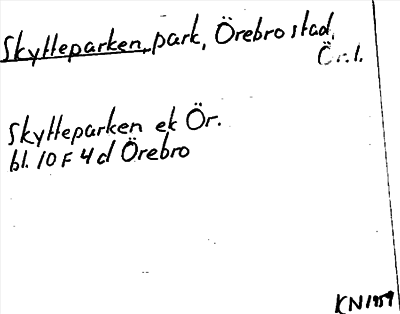 Skytteparken, park, Örebro stad,
Ör.l.
Skytteparken ek Ör.
bl. 10 F 4 d Örebro
KN 1959